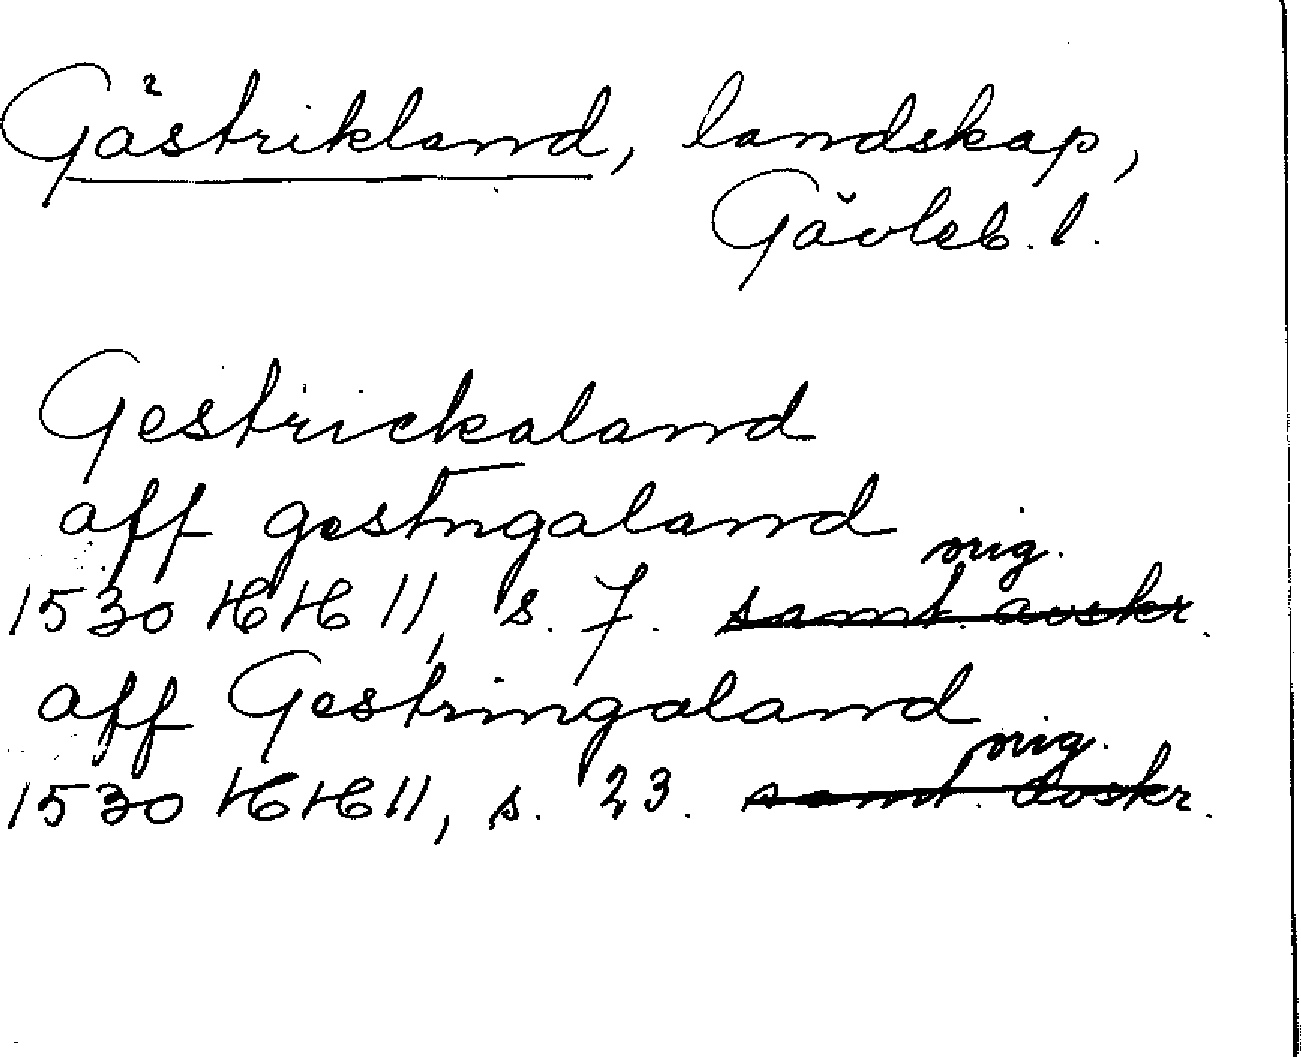 Gästrikland, landskap,
Gävleb. l.
Gestrickaland
aff gest̅ngaland
orig.
1530 HH 11, s. 7. samt. avskr.
aff Gestringaland
orig.
1530 HH 11, s. 23. samt. avskr.